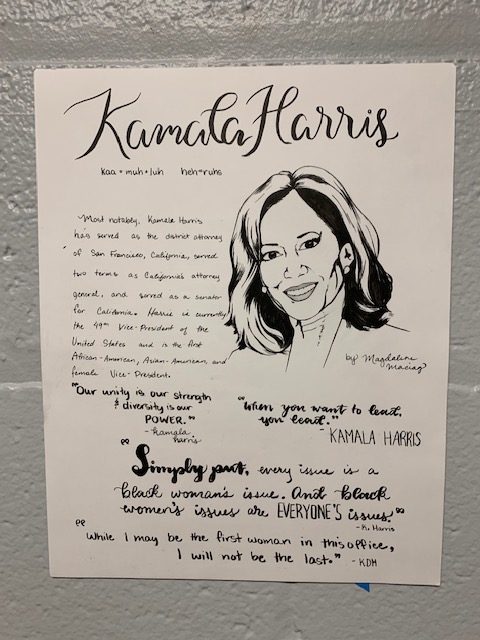 Kamala Harris
kaa • muh • luh heh • ruhs
Most notably, Kamala Harris
has served as the district attorney
of San Francisco, California, served
two terms as California's attorney
general, and served as a senator
for California. Harris is currently
the 49th Vice-President of the
United States and is the first
African-American, Asian-American, and
female Vice-President.
by Magdalena
Maciag
"Our unity is our strength
& diversity is our
POWER."
- Kamala
Harris
"When you want to lead,
you lead."
- KAMALA HARRIS
"Simply put, every issue is a
black woman's issue. And black
women's issues are EVERYONE'S issues."
- K. Harris
"While I may be the first woman in this office,
I will not be the last." - KDH